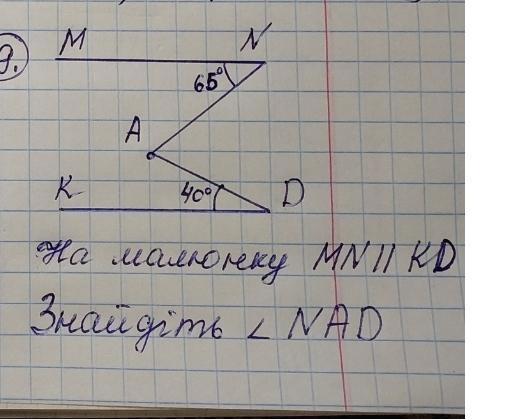 9.
M N
65°
A
K 40° D
На малюнку MN || KD
Знайдіть ∠ NAD